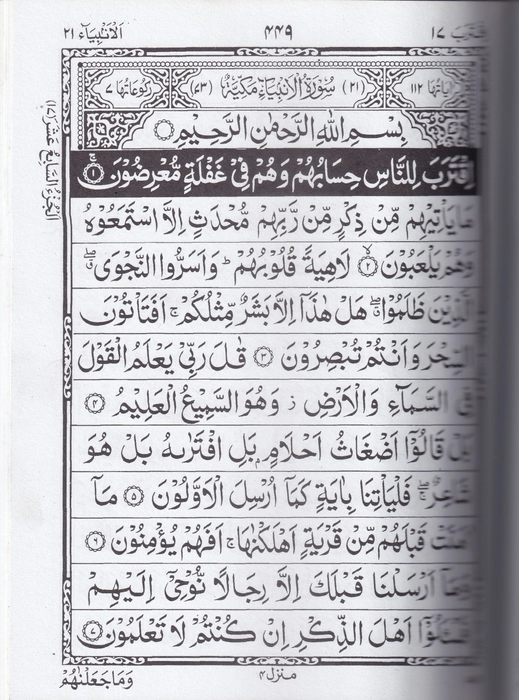 اقترب ١٧ ٤٤٩ الانبياء ٢١
اٰیاتها ١١٢ (٢١) سُوْرَةُ الْاَنْۢبِيَآءِ مَكِّيَّةٌ (٧٣) رکوعاتها ٧
بِسْمِ اللّٰهِ الرَّحْمٰنِ الرَّحِيْمِ
اِقْتَرَبَ لِلنَّاسِ حِسَابُهُمْ وَهُمْ فِيْ غَفْلَةٍ مُّعْرِضُوْنَ ۚ ١
مَا يَاْتِيْهِمْ مِّنْ ذِكْرٍ مِّنْ رَّبِّهِمْ مُّحْدَثٍ اِلَّا اسْتَمَعُوْهُ
وَهُمْ يَلْعَبُوْنَ ۙ ٢ لَاهِيَةً قُلُوْبُهُمْ ؕ وَاَسَرُّوا النَّجْوَى ۖۗ
الَّذِيْنَ ظَلَمُوْا ۖۗ هَلْ هٰذَآ اِلَّا بَشَرٌ مِّثْلُكُمْ ۚ اَفَتَاْتُوْنَ
السِّحْرَ وَاَنْتُمْ تُبْصِرُوْنَ ٣ قٰلَ رَبِّيْ يَعْلَمُ الْقَوْلَ
فِي السَّمَآءِ وَالْاَرْضِ ز وَهُوَ السَّمِيْعُ الْعَلِيْمُ ٤
بَلْ قَالُوْٓا اَضْغَاثُ اَحْلَامٍۭ بَلِ افْتَرٰىهُ بَلْ هُوَ
شَاعِرٌ ۖۚ فَلْيَاْتِنَا بِاٰيَةٍ كَمَآ اُرْسِلَ الْاَوَّلُوْنَ ٥ مَآ
اٰمَنَتْ قَبْلَهُمْ مِّنْ قَرْيَةٍ اَهْلَكْنٰهَا ۚ اَفَهُمْ يُؤْمِنُوْنَ ٦
وَمَآ اَرْسَلْنَا قَبْلَكَ اِلَّا رِجَالًا نُّوْحِيْٓ اِلَيْهِمْ
فَسْـَٔلُوْٓا اَهْلَ الذِّكْرِ اِنْ كُنْتُمْ لَا تَعْلَمُوْنَ ٧
منزل ٤ وَمَا جَعَلْنٰهُمْ
الجزء السابع عشر (١٧)